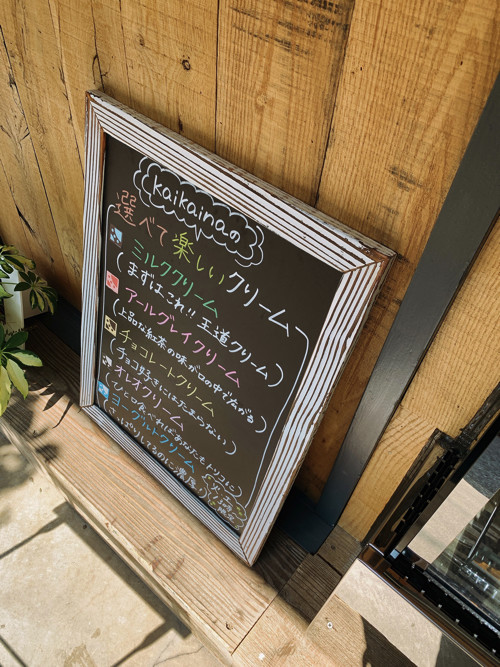 kaikainaの
選べて楽しいクリーム
ミルククリーム
(まずはこれ!! 王道クリーム)
アールグレイクリーム
(上品な紅茶の味が口の中で広がる)
チョコレートクリーム
(チョコ好きにはたまらない)
オレオクリーム
(ひと口食べればあなたもトリコに)
ヨーグルトクリーム